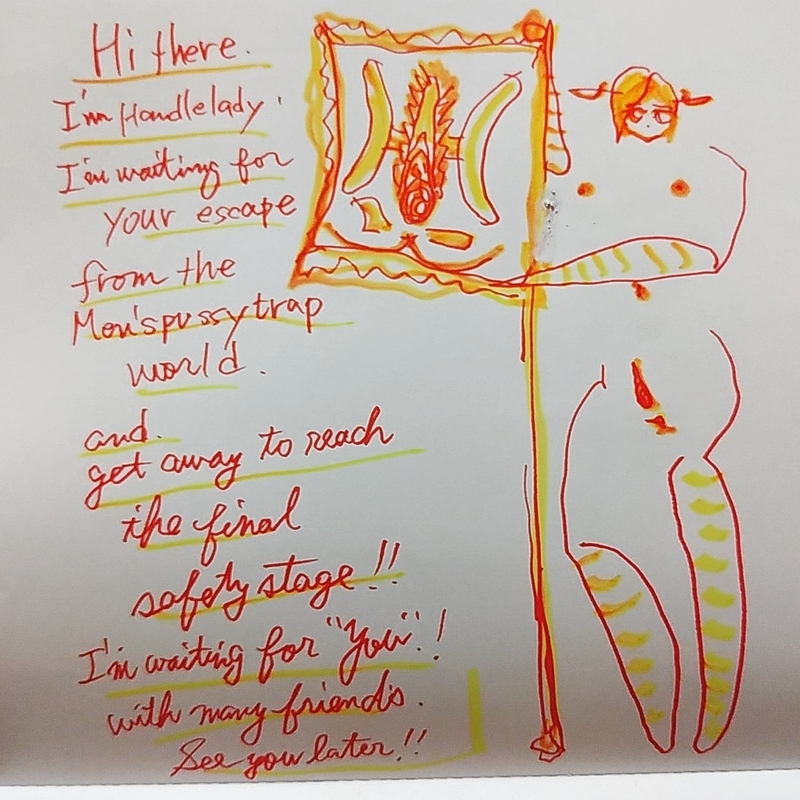 Hi there.
I'm Handlelady.
I'm waiting for
your escape
from the
Men's pussy trap
world.
and.
get away to reach
the final
safety stage!!
I'm waiting for "You"!
with many friends.
See you later!!